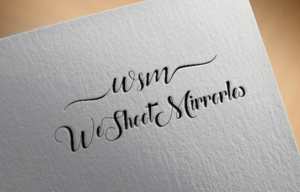 wsm
WeShootMirrorles